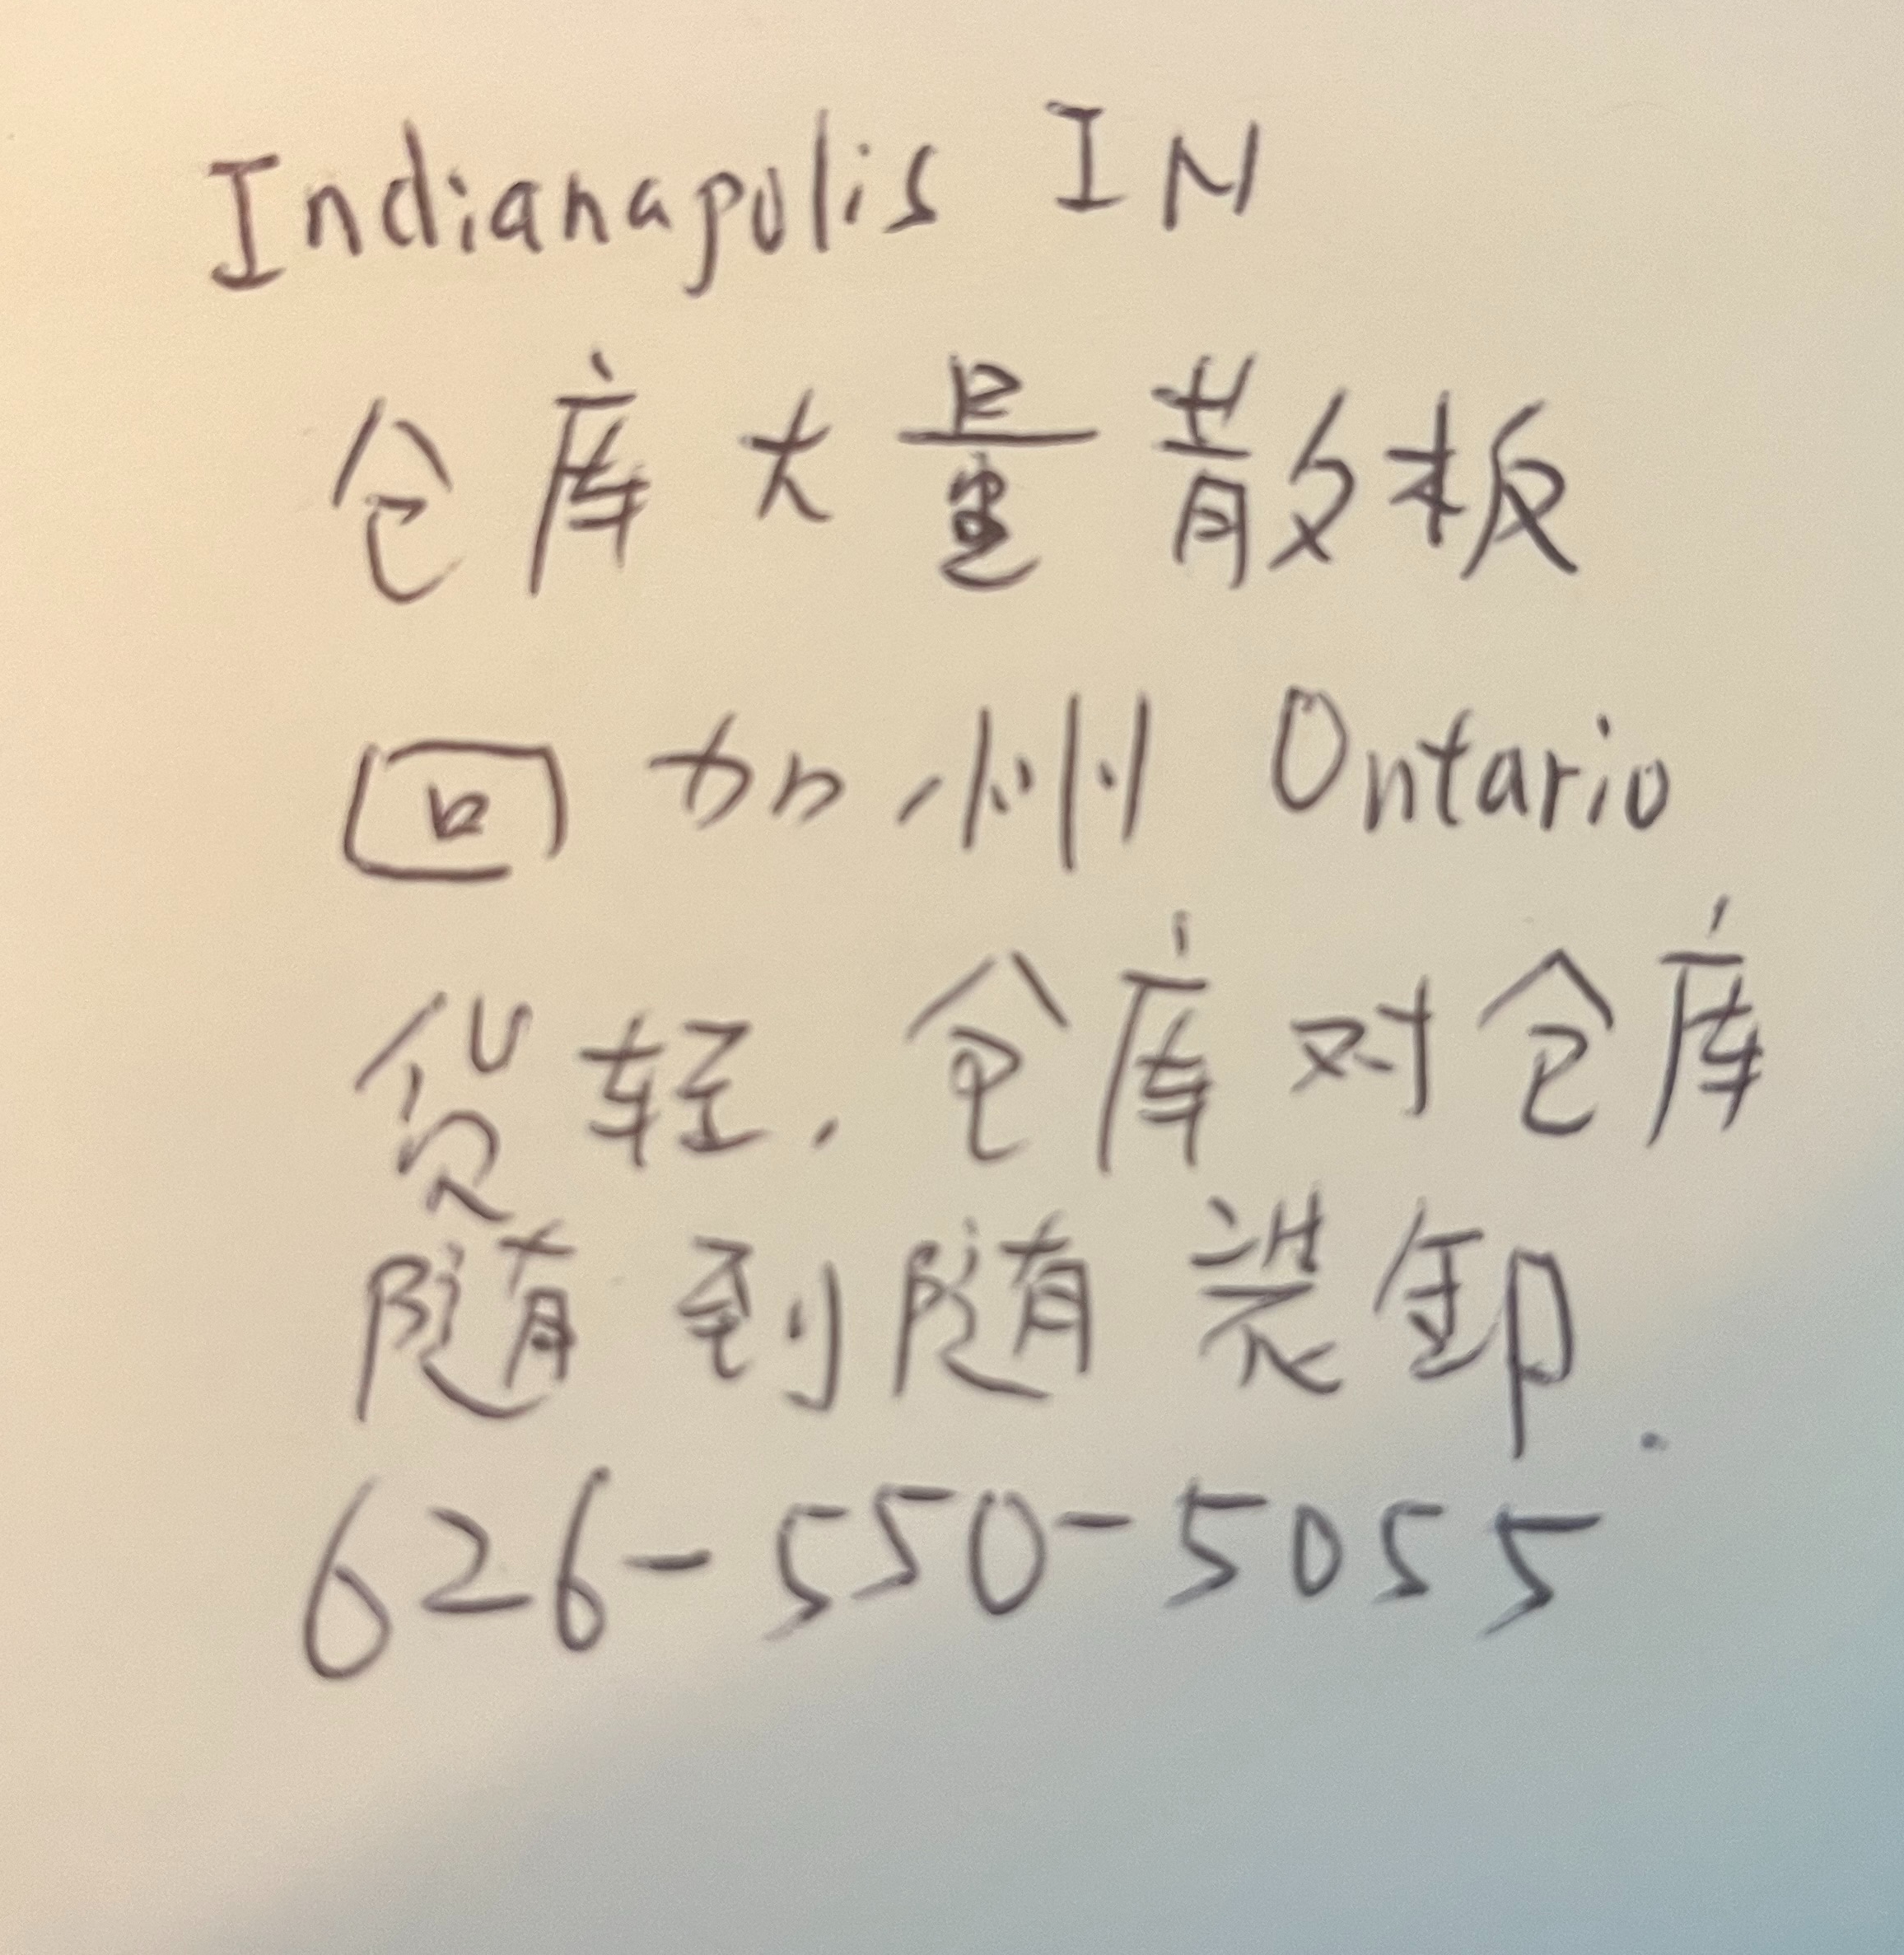 Indianapolis IN
仓库大量散板
回加州 Ontario
货轻,仓库对仓库
随到随装卸.
626-550-5055